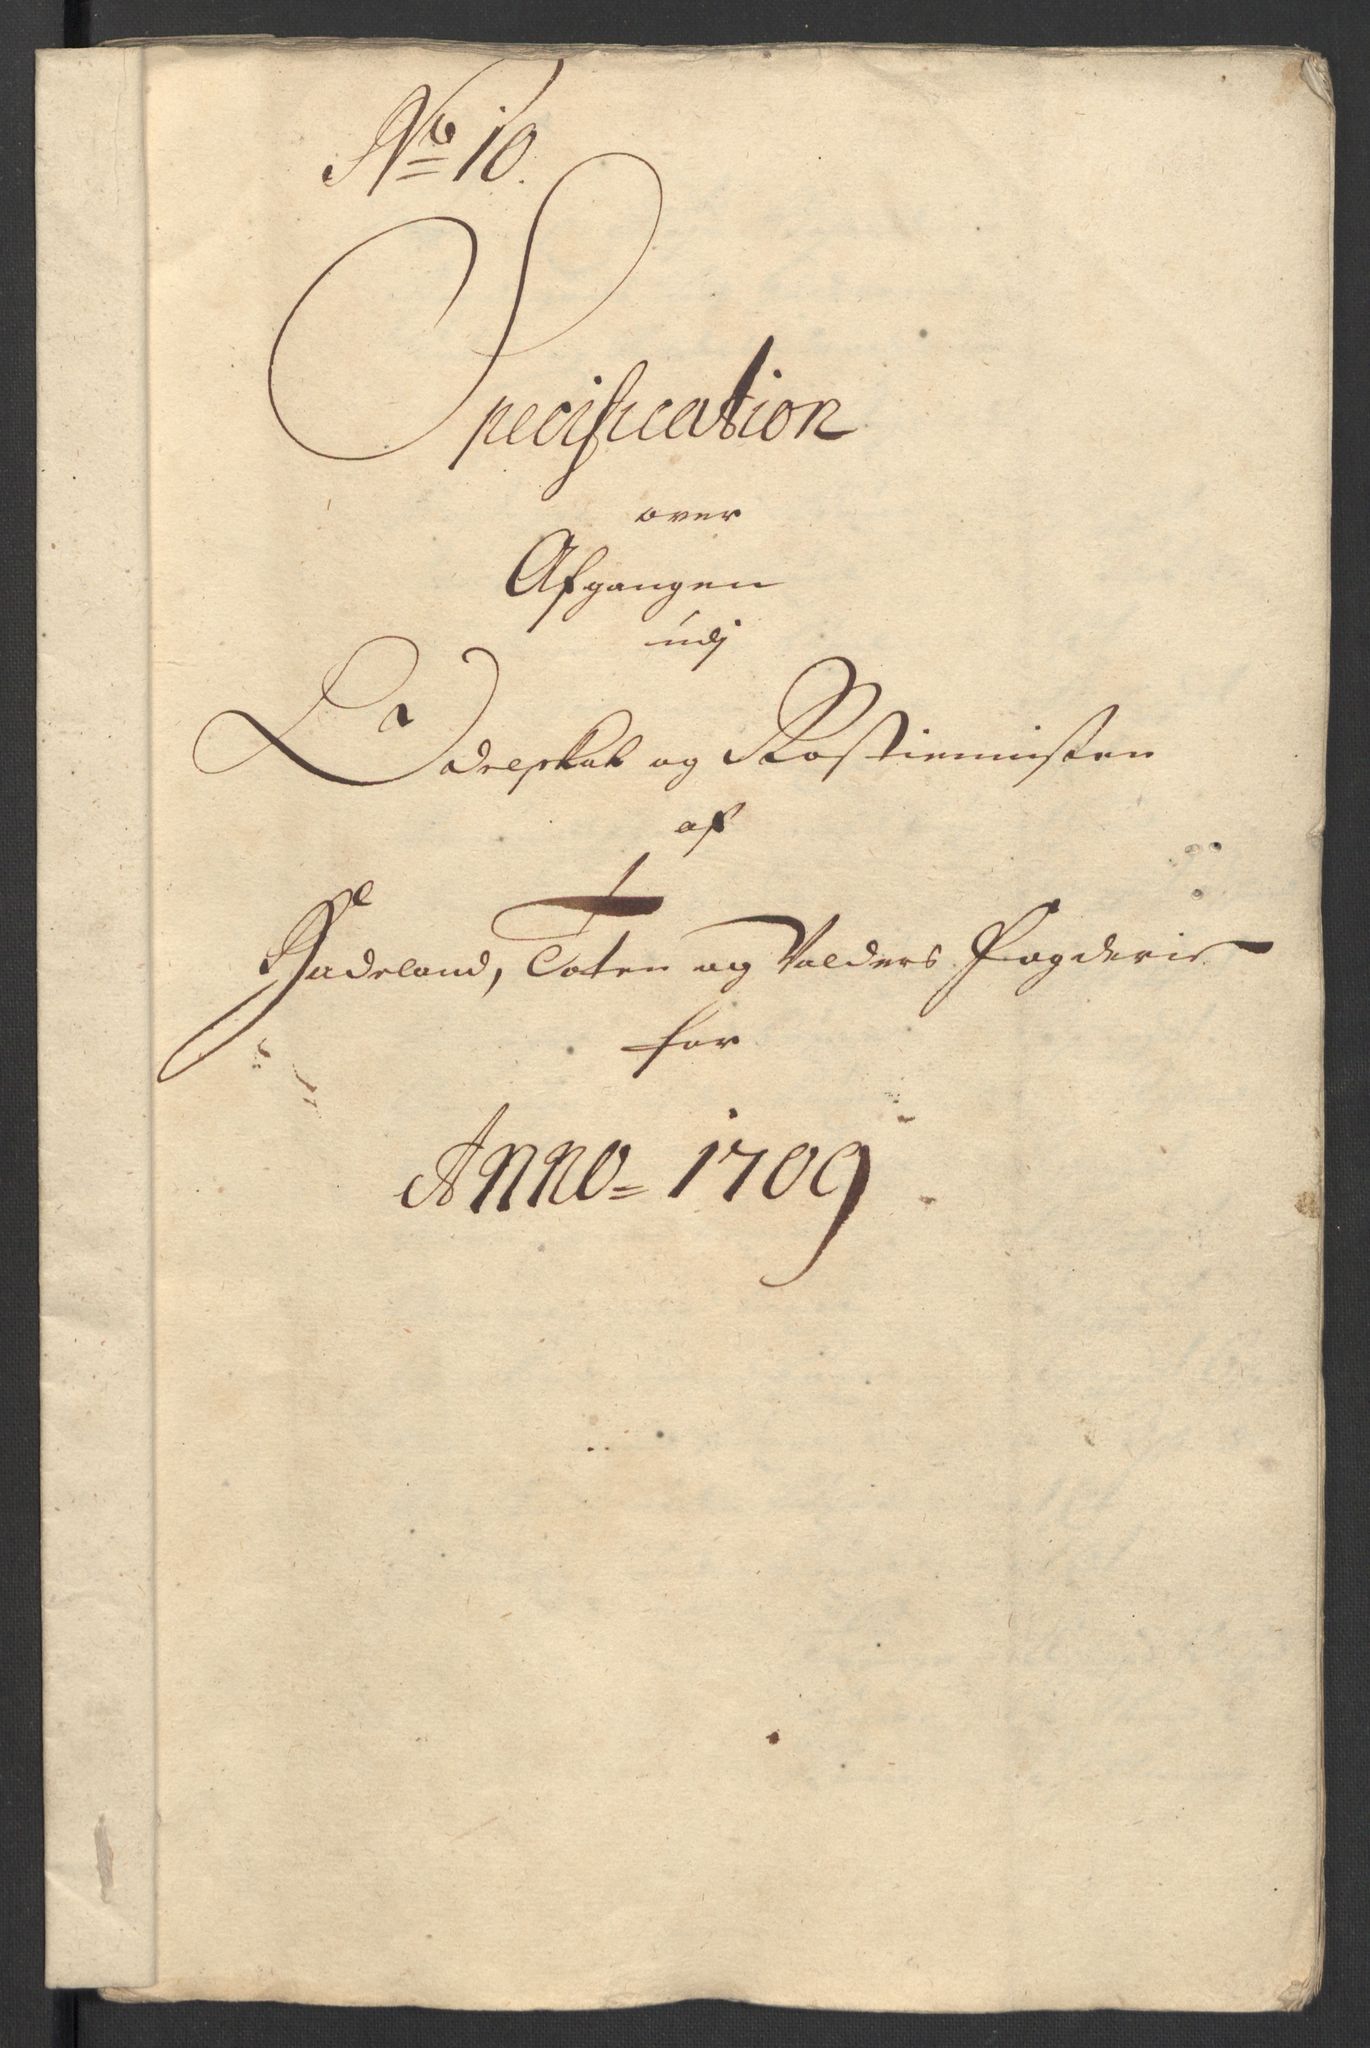 No 10.
Specification
over
Afgangen
udj
Ladreskat og Rostiennisten
af
Hadeland, Toten og Valders Fogderie
for
Anno 1709